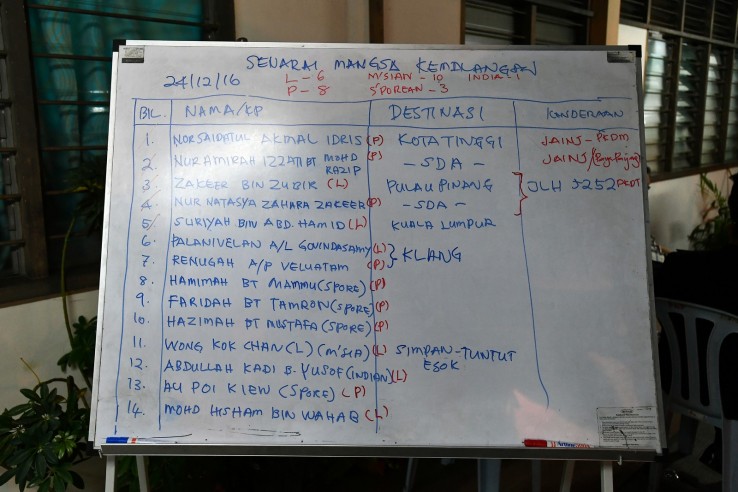 SENARAI MANGSA KEMALANGAN
24/12/16
L - 6 M'SIAN - 10 INDIA - 1
P - 8 S'POREAN - 3
BIL. NAMA/KP DESTINASI KENDERAAN
1. NORSAIDATUL AKMAL IDRIS (P) KOTA TINGGI JAINJ - PKDTM
2. NUR AMIRAH IZZATI BT MOHD RAZIP (P) - SDA - JAINJ/
3. ZAKEER BIN ZUBIR (L) PULAU PINANG JLH 5252 PKDT
4. NUR NATASYA ZAHARA ZAKEER (P) - SDA -
5. SURIYAH BIN ABD. HAMID (L) KUALA LUMPUR
6. PALANIVELAN A/L GOVINDASAMY (L) KLANG
7. RENUGAH A/P VELUATAM (P)
8. HAMIMAH BT MAMMU (SPORE) (P)
9. FARIDAH BT TAMRON (SPORE) (P)
10. HAZIMAH BT MUSTAFA (SPORE) (P)
11. WONG KOK CHAN (L) (M'SIA) (L) SIMPAN - TUNTUT ESOK
12. ABDULLAH KADI B. YUSOF (INDIAN) (L)
13. AU POI KIEW (SPORE) (P)
14. MOHD HISHAM BIN WAHAB (L)